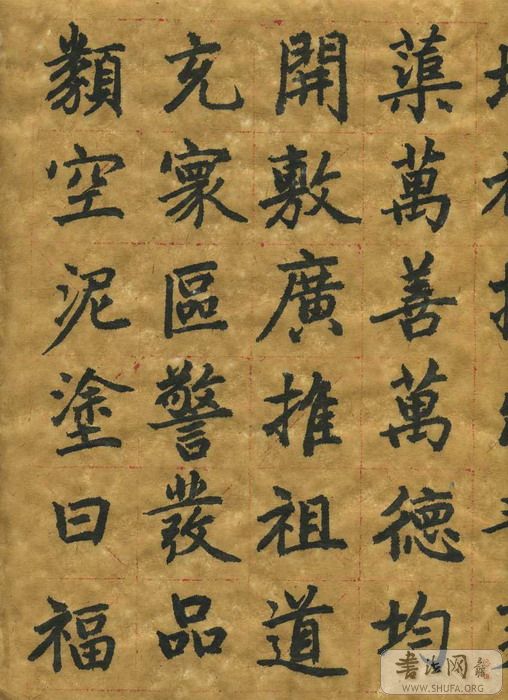 蕖萬善萬德均
開敷廣推祖道
充寰區警發品
類空泥塗曰福
書法网
WWW.SHUFA.ORG